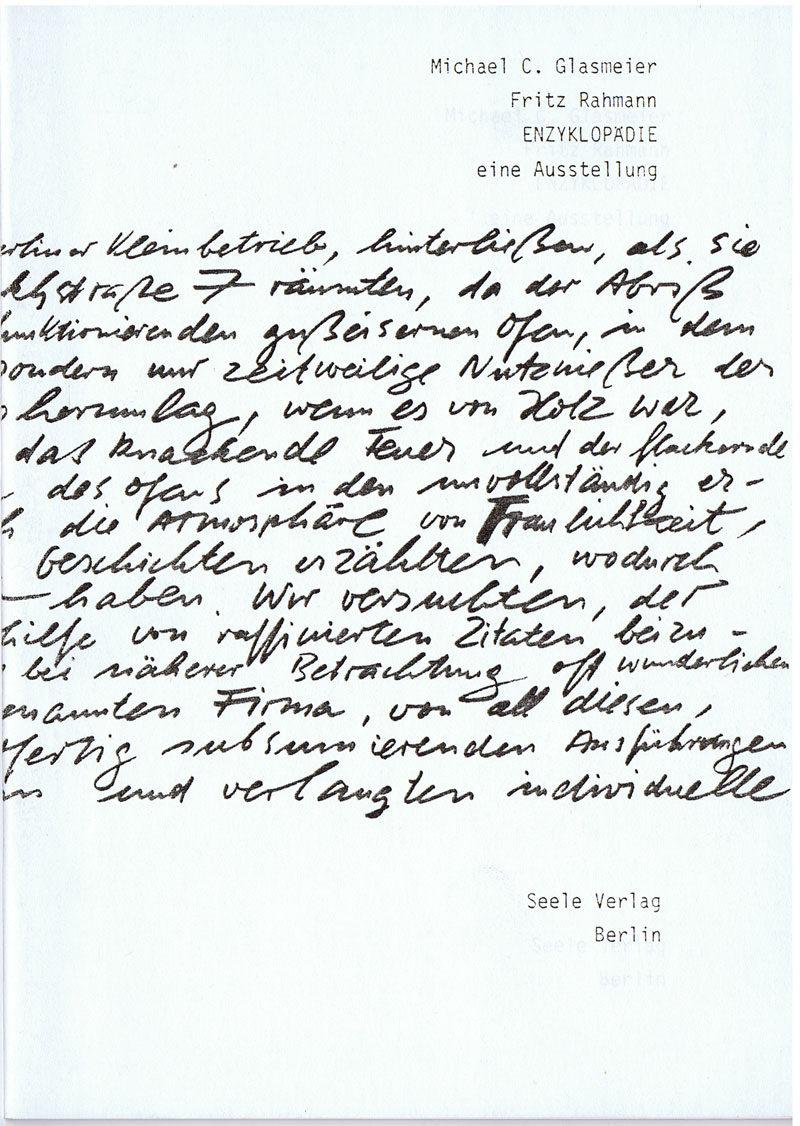 Michael C. Glasmeier
Fritz Rahmann
ENZYKLOPÄDIE
eine Ausstellung
erliner Kleinbetrieb, hinterließen, als sie
straße 7 räumten, da der Abriß
unktionierenden gußeisernen Ofen, in dem
sondern nur zeitweilige Nutznießer der
herumlag, wenn es von Holz war,
das knackende Feuer und der flackernde
des Ofens in den unvollständig er-
die Atmosphäre von Traulichkeit,
Geschichten erzählten, wodurch
haben. Wir versuchten, der
hilfe von raffinierten Zitaten beizu-
bei näherer Betrachtung oft wunderlichen
enannten Firma, von all diesen,
fertig subsumierenden Ausführungen
und verlangten individuelle
Seele Verlag
Berlin